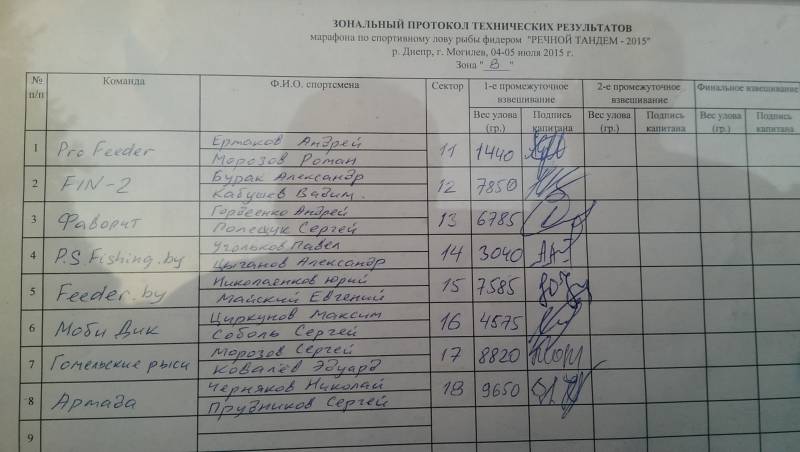 ЗОНАЛЬНЫЙ ПРОТОКОЛ ТЕХНИЧЕСКИХ РЕЗУЛЬТАТОВ
марафона по спортивному лову рыбы фидером "РЕЧНОЙ ТАНДЕМ - 2015"
р. Днепр, г. Могилев, 04-05 июля 2015 г.
Зона " В "
№ п/п Команда Ф.И.О. спортсмена Сектор 1-е промежуточное взвешивание 2-е промежуточное взвешивание Финальное взвешивание
Вес улова (гр.) Подпись капитана Вес улова (гр.) Подпись капитана Вес улова (гр.) Подпись капитана
1 Pro Feeder Ермаков Андрей 11 1440
Морозов Роман
2 FIN-2 Бурак Александр 12 7850
Кабушев Вадим.
3 Фаворит Гордеенко Андрей 13 6785
Полещук Сергей
4 P.S Fishing.by Угольков Павел 14 3040
Цыганов Александр
5 Feeder.by Николаенков Юрий 15 7585
Майский Евгений
6 Моби Дик Циркунов Максим 16 4575
Соболь Сергей
7 Гомельские рыси Морозов Сергей 17 8820
Ковалёв Эдуард
8 Армада Черняков Николай 18 9650
Прудников Сергей
9